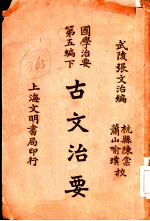 武陵張文治編
杭縣陳棠
蕭山喻璞
校
古文治要
國學治要
第五編下
上海文明書局印行
363